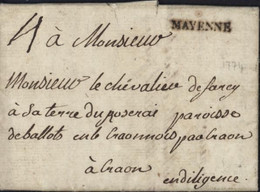 4 à Monsieur
MAYENNE
1774
Monsieur le chevalier de farcy
à sa terre du roserai paroisse
de ballots en le Craonnois par Craon
à Craon
en diligence